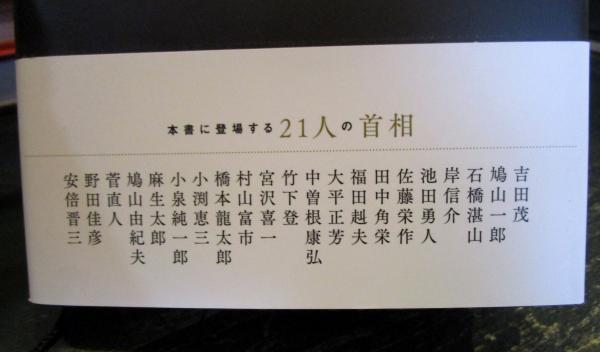 本書に登場する21人の首相
吉田茂
鳩山一郎
石橋湛山
岸信介
池田勇人
佐藤栄作
田中角栄
福田赳夫
大平正芳
中曽根康弘
竹下登
宮沢喜一
村山富市
橋本龍太郎
小渕恵三
小泉純一郎
麻生太郎
鳩山由紀夫
菅直人
野田佳彦
安倍晋三